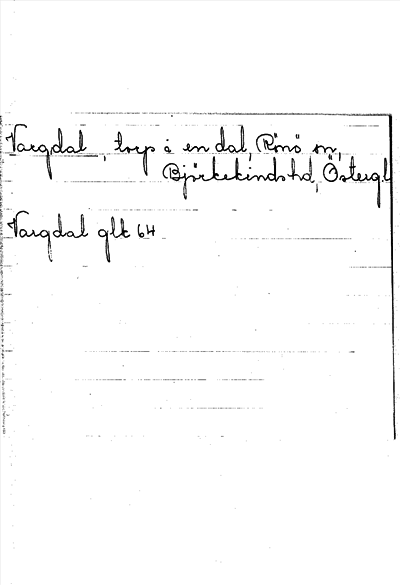 Vargdal, torp i en dal, Rönö sn,
Björkekinds hd, Östergl
Vargdal glk 64